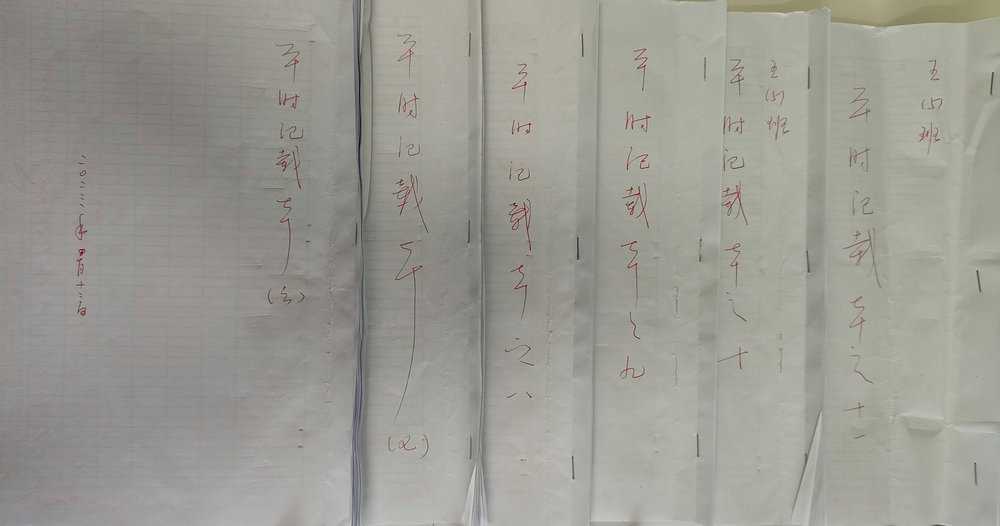 二〇二三年四月十二日
平时记载本
(六)
平时记载本
(七)
平时记载本之八
平时记载本之九
平时记载本之十
五(5)班
平时记载本之十一
五(5)班